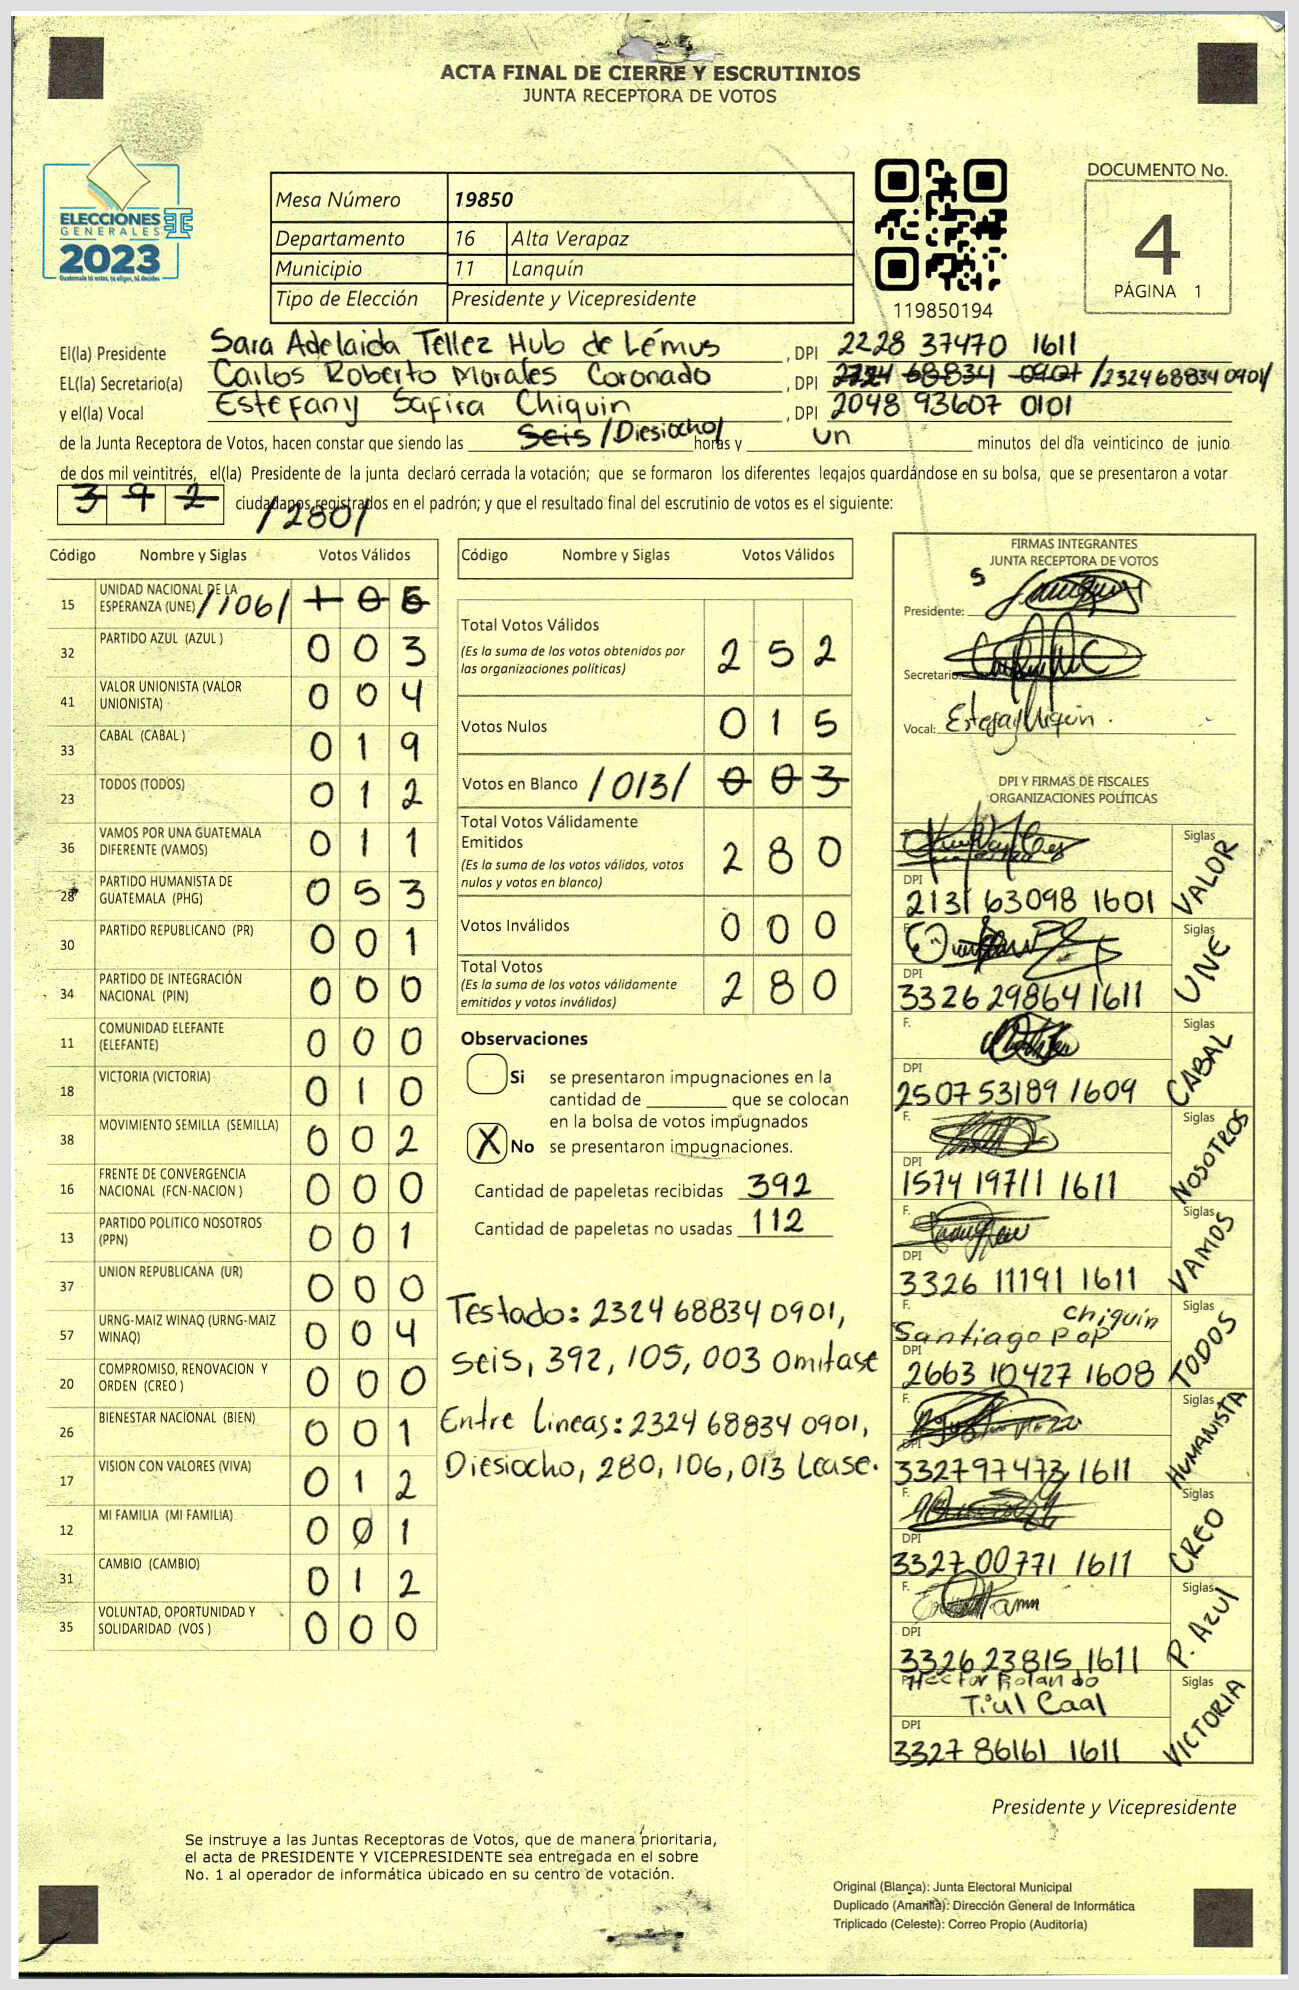 ACTA FINAL DE CIERRE Y ESCRUTINIOS
JUNTA RECEPTORA DE VOTOS
ELECCIONES
GENERALES
2023
Guatemala tú votas, tú eliges, tú decides
Mesa Número 19850
Departamento 16 Alta Verapaz
Municipio 11 Lanquín
Tipo de Elección Presidente y Vicepresidente
119850194
DOCUMENTO No.
4
PÁGINA 1
El(la) Presidente Sara Adelaida Tellez Hub de Lémus , DPI 2228 37470 1611
EL(la) Secretario(a) Carlos Roberto Morales Coronado , DPI 2324 68834 0907 /2324 68834 0901/
y el(la) Vocal Estefany Safira Chiquin , DPI 2048 93607 0101
de la Junta Receptora de Votos, hacen constar que siendo las Seis /Diesiocho/ horas y un minutos del día veinticinco de junio
de dos mil veintitrés, el(la) Presidente de la junta declaró cerrada la votación; que se formaron los diferentes legajos guardándose en su bolsa, que se presentaron a votar
392 /280/ ciudadanos registrados en el padrón; y que el resultado final del escrutinio de votos es el siguiente:
Código Nombre y Siglas Votos Válidos
15 UNIDAD NACIONAL DE LA ESPERANZA (UNE) /106/ 105
32 PARTIDO AZUL (AZUL ) 003
41 VALOR UNIONISTA (VALOR UNIONISTA) 004
33 CABAL (CABAL ) 019
23 TODOS (TODOS) 012
36 VAMOS POR UNA GUATEMALA DIFERENTE (VAMOS) 011
28 PARTIDO HUMANISTA DE GUATEMALA (PHG) 053
30 PARTIDO REPUBLICANO (PR) 001
34 PARTIDO DE INTEGRACIÓN NACIONAL (PIN) 000
11 COMUNIDAD ELEFANTE (ELEFANTE) 000
18 VICTORIA (VICTORIA) 010
38 MOVIMIENTO SEMILLA (SEMILLA) 002
16 FRENTE DE CONVERGENCIA NACIONAL (FCN-NACION ) 000
13 PARTIDO POLITICO NOSOTROS (PPN) 001
37 UNION REPUBLICANA (UR) 000
57 URNG-MAIZ WINAQ (URNG-MAIZ WINAQ) 004
20 COMPROMISO, RENOVACION Y ORDEN (CREO ) 000
26 BIENESTAR NACIONAL (BIEN) 001
17 VISION CON VALORES (VIVA) 012
12 MI FAMILIA (MI FAMILIA) 001
31 CAMBIO (CAMBIO) 012
35 VOLUNTAD, OPORTUNIDAD Y SOLIDARIDAD (VOS ) 000
Código Nombre y Siglas Votos Válidos
Total Votos Válidos 252
(Es la suma de los votos obtenidos por
las organizaciones políticas)
Votos Nulos 015
Votos en Blanco /013/ 003
Total Votos Válidamente
Emitidos 280
(Es la suma de los votos válidos, votos
nulos y votos en blanco)
Votos Inválidos 000
Total Votos 280
(Es la suma de los votos válidamente
emitidos y votos inválidos)
Observaciones
Si se presentaron impugnaciones en la
cantidad de ________ que se colocan
en la bolsa de votos impugnados
X No se presentaron impugnaciones.
Cantidad de papeletas recibidas 392
Cantidad de papeletas no usadas 112
Testado: 2324 68834 0901,
seis, 392, 105, 003 Omitase
Entre Lineas: 2324 68834 0901,
Diesiocho, 280, 106, 013 Lease.
FIRMAS INTEGRANTES
JUNTA RECEPTORA DE VOTOS
Presidente:
Secretario:
Vocal: Estefany Chiquin.
DPI Y FIRMAS DE FISCALES
ORGANIZACIONES POLÍTICAS
Siglas VALOR
DPI 2131 63098 1601
Siglas UNE
DPI 3326 29864 1611
F. Siglas CABAL
DPI 2507 53189 1609
F. Siglas NOSOTROS
DPI 1574 19711 1611
F. Siglas VAMOS
DPI 3326 11191 1611
F. Santiago Pop Chiquin Siglas TODOS
DPI 2663 10427 1608
F. Siglas HUMANISTA
DPI 3327 97473 1611
F. Siglas CREO
DPI 3327 00771 1611
F. Siglas P. Azul
DPI 3326 23815 1611
Hector Rolando
Tiul Caal Siglas VICTORIA
DPI 3327 86161 1611
Presidente y Vicepresidente
Se instruye a las Juntas Receptoras de Votos, que de manera prioritaria,
el acta de PRESIDENTE Y VICEPRESIDENTE sea entregada en el sobre
No. 1 al operador de informática ubicado en su centro de votación.
Original (Blanca): Junta Electoral Municipal
Duplicado (Amarilla): Dirección General de Informática
Triplicado (Celeste): Correo Propio (Auditoría)